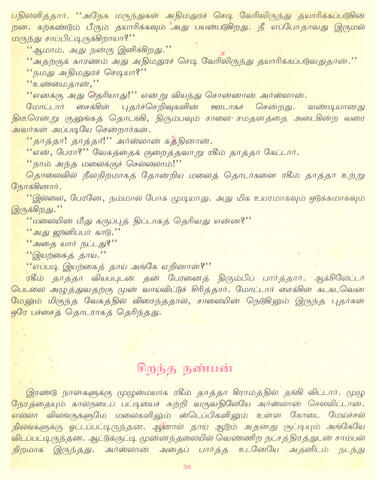 பதிலளித்தார். “அநேக மருந்துகள் அதிமதுரச் செடி வேரிலிருந்து தயாரிக்கப்படுகின்
றன. கற்கண்டும் பீரும் தயாரிக்கவும் அது பயன்படுகிறது. நீ எப்போதாவது இருமல்
மருந்து சாப்பிட்டிருக்கிறாயா?”
“ஆமாம். அது நன்கு இனிக்கிறது.”
“அதற்குக் காரணம் அது அதிமதுரச் செடி வேரிலிருந்து தயாரிக்கப்படுவதுதான்.”
“நமது அதிமதுரச் செடியா?”
“உண்மைதான்,”
“எனக்கு அது தெரியாது!” என்று வியந்து சொன்னான் அர்ஸ்லான்.
மோட்டார் சைக்கிள் புதர்ச்செறிவுகளின் ஊடாகச் சென்றது. வண்டியானது
திடீரென்று குலுங்கத் தொடங்கி, திரும்பவும் சாலை சமதளத்தை அடைகின்ற வரை
அவர்கள் அப்படியே சென்றார்கள்.
“தாத்தா! தாத்தா!” அர்ஸ்லான் கத்தினான்.
“என், பேரா?” வேகத்தைக் குறைத்தவாறு ரகீம் தாத்தா கேட்டார்.
“நாம் அந்த மலைக்குச் செல்லலாம்!”
தொலைவில் நீலநிறமாகத் தோன்றிய மலைத் தொடர்களை ரகீம் தாத்தா உற்று
நோக்கினார்.
“இல்லை, பேரனே, நம்மால் போக முடியாது. அது மிக உயரமாகவும் ஒடுக்கமாகவும்
இருக்கிறது.”
“மலையின் மீது கருப்புத் திட்டாகத் தெரிவது என்ன?”
“அது ஜூனிப்பர் காடு.”
“அதை யார் நட்டது?”
“இயற்கைத் தாய்.”
“எப்படி இயற்கைத் தாய் அங்கே ஏறினாள்?”
ரகீம் தாத்தா வியப்புடன் தன் பேரனைத் திரும்பிப் பார்த்தார். ஆக்ஸிலேட்டர்
பெடலை அழுத்துவதற்கு முன் வாய்விட்டுச் சிரித்தார். மோட்டார் சைக்கிள் கடகடவென
மேலும் மிகுந்த வேகத்தில் விரைந்ததால், சாலையின் நெடுகிலும் இருந்த புதர்கள்
ஒரே பச்சைத் தொடராகத் தெரிந்தது.
சிறந்த நண்பன்
இரண்டு நாள்களுக்கு முழுமையாக ரகீம் தாத்தா கிராமத்தில் தங்கி விட்டார். முழு
நேரத்தையும் கால்நடைப் பட்டியைச் சுற்றி வருவதிலேயே அர்ஸ்லான் செலவிட்டான்.
எல்லா விலங்குகளுமே மலைகளிலும் ஸ்டெப்பிகளிலும் உள்ள கோடை மேய்ச்சல்
நிலங்களுக்கு ஓட்டப்பட்டிருந்தன. ஆனால் தாய் ஆடும் அதனது குட்டியும் அங்கேயே
விடப்பட்டிருந்தன. ஆட்டுக்குட்டி முன்னந்தலையில் வெண்ணிற நட்சத்திரத்துடன் சாம்பல்
நிறமாக இருந்தது. அர்ஸ்லான் அதைப் பார்த்த உடனேயே அதனிடம் நடந்து
36